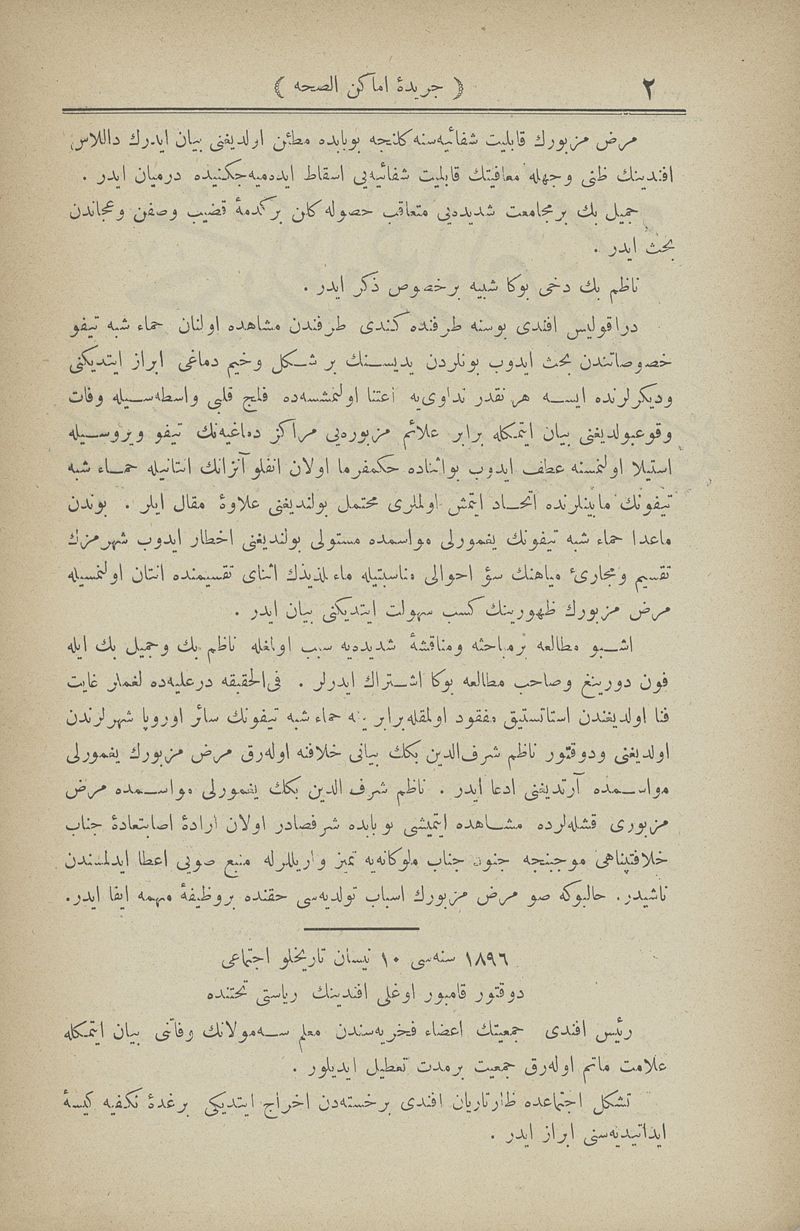 ٢
﴿ جريدهٔ اماكن الصحه ﴾
مرض مزبورك قابليت شفائيه‌سنه كلنجه بوبابده مطئن اولديغنى بيان ايدرك داللاس
افندينك ظنى وجهله معافيتك قابليت شفائيه‌يى اسقاط ايده‌ميه‌جكنيده درميان ايدر .
جميل بك برمجامعت شديده‌يى متعاقب حصوله كلن بركدمهٔ قضيب وصفن وعجاندن
بحث ايدر .
ناظم بك دخى بوكا شبيه برخصوص ذكر ايدر .
دراقوليس افندى بوسنه طرفنده كندى طرفندن مشاهده اولنان حماء شبه تيفو
خصوصاتندن بحث ايدوب بونلردن يديسـنك بر شـكل وخيم دماغى ابراز ايتديكنى
وديكرلرنده ايسـه هر نقدر تداوى‌يه اعتنا اولنمشسه‌ده فلج قلبى واسطه‌سـيله وفات
وقوعبولديغنى بيان ايتمكله برابر علائم مزبوره‌يى مراكز دماغيه‌نك تيفو ويروسـيله
استيلا اولنمسنه عطف ايدوب بواثناده حكمفرما اولان انفلوآنزانك انتانيله حمـاء شبه
تيفونك مابينلرنده اتحـاد ايتمش اولملرى محتمل بولنديغنى علاوهٔ مقال ايلر . بوندن
ماعدا حماء شبه تيفونك يغمورلى مواسمده مستولى بولنديغنى اخطار ايدوب شهرمزك
تقسيم ومجارىٔ مياهنك سؤ احوالى مناسبتيله ماء لذيذك اثناى تقسيمنده انتان اولنمسيله
مرض مزبورك ظهورينك كسب سهولت ايتديكنى بيان ايدر .
اشـبو مطالعه برمباحثه ومناقشهٔ شديده‌يه سبب اولمغله ناظم بك وجميل بك ايله
فون دورينغ وصاحب مطالعه بوكا اشـتراك ايدرلر . فى‌الحقيقه درعليه‌ده لغملر غايت
فنا اولديغندن استاتستيق مفقود اولمقله‌برابر ينه حماء شبه تيفونك سائر اوروپا شهرلرندن
اولديغنى ودوقتور ناظم شرف‌الدين بكك بيانى خلافنه اوله‌رق مرض مزبورك يغمورلى
مواسـمده آرتديغنى ادعا ايدر . ناظم شرف الدين بكك يغمورلى مواسـمده مرض
مزبورى قشله‌لرده مشـاهده ايتميشى بوبابده شرفصادر اولان ارادهٔ اصابتعادهٔ جناب
خلافتپناهى موجبنجه جنود جناب ملوكانه‌يه تميز واريللرله منبع صويى اعطا ايدلمسندن
ناشيدر. حالبوكه صو مرض مزبورك اسباب توليديه‌سى حقنده بروظيفهٔ مهمه ايفا ايدر.
١٨٩٦ سنه‌سى ١٠ نيسان تاريخلو اجتماعى
دوقتور قامبور اوغلى افندينك رياستى تحتنده
رئيس افندى جمعيتك اعضاء فخريه‌سندن معلم سـه‌مولانك وفاتى بيان ايتمكله
علامت ماتم اوله‌رق جمعيت برمدت تعطيل ايديلور .
تشكل اجتماعده ظارتاريان افندى برخسته‌دن اخراج ايتديكى برغدهٔ نكفيه كيسهٔ
ايداتيديه‌سنى ابراز ايدر .